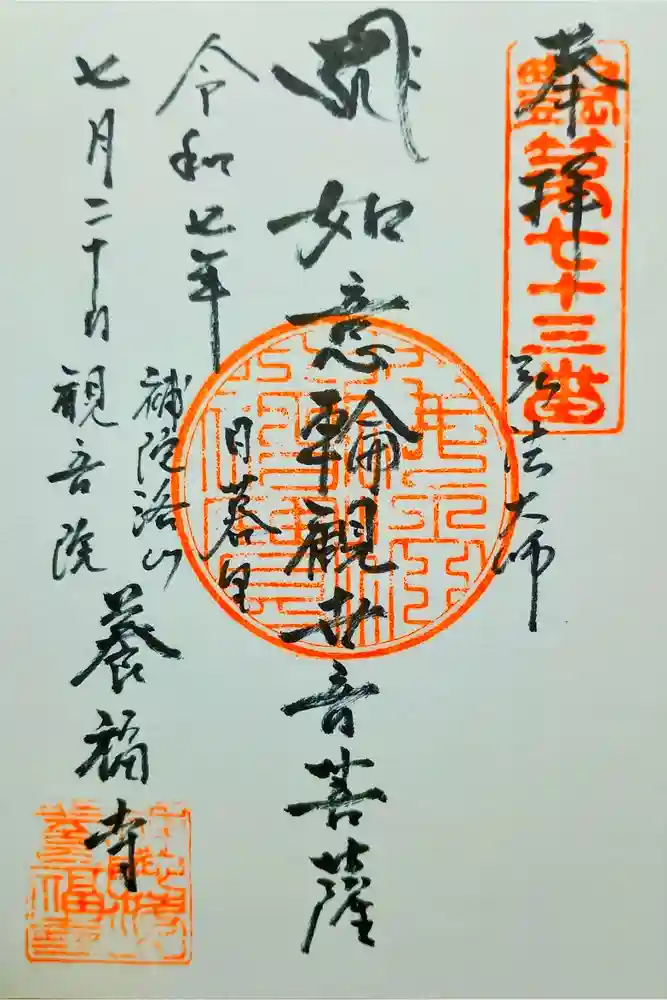 奉拝
第七十三番
弘法大師
如意輪觀世音菩薩
日暮里
令和七年
七月二十日
補陀洛山
観音院
養福寺